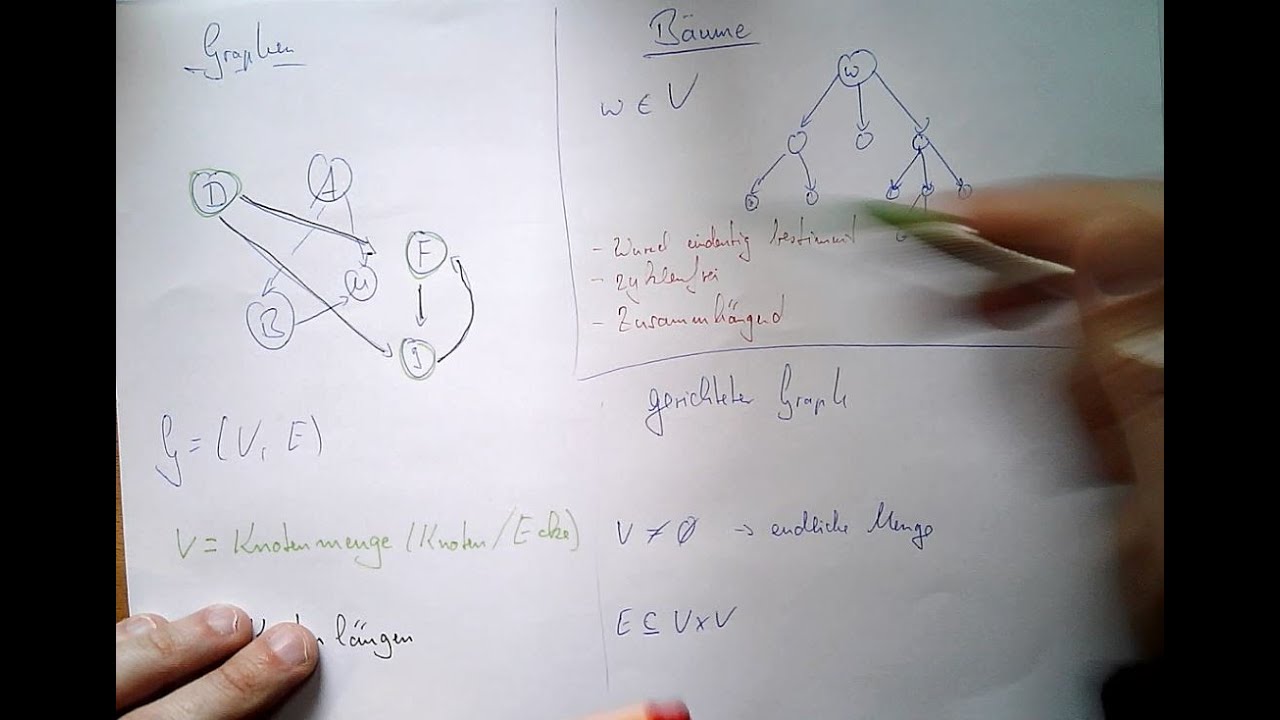 Graphen
D
A
F
M
B
g
G = (V, E)
V = Knotenmenge (Knoten / Ecke)
längen
Bäume
w ∈ V
w
- Wurzel eindeutig bestimmt
- zyklenfrei
- Zusammenhängend
gerichteter Graph
V ≠ ∅ → endliche Menge
E ⊆ V x V